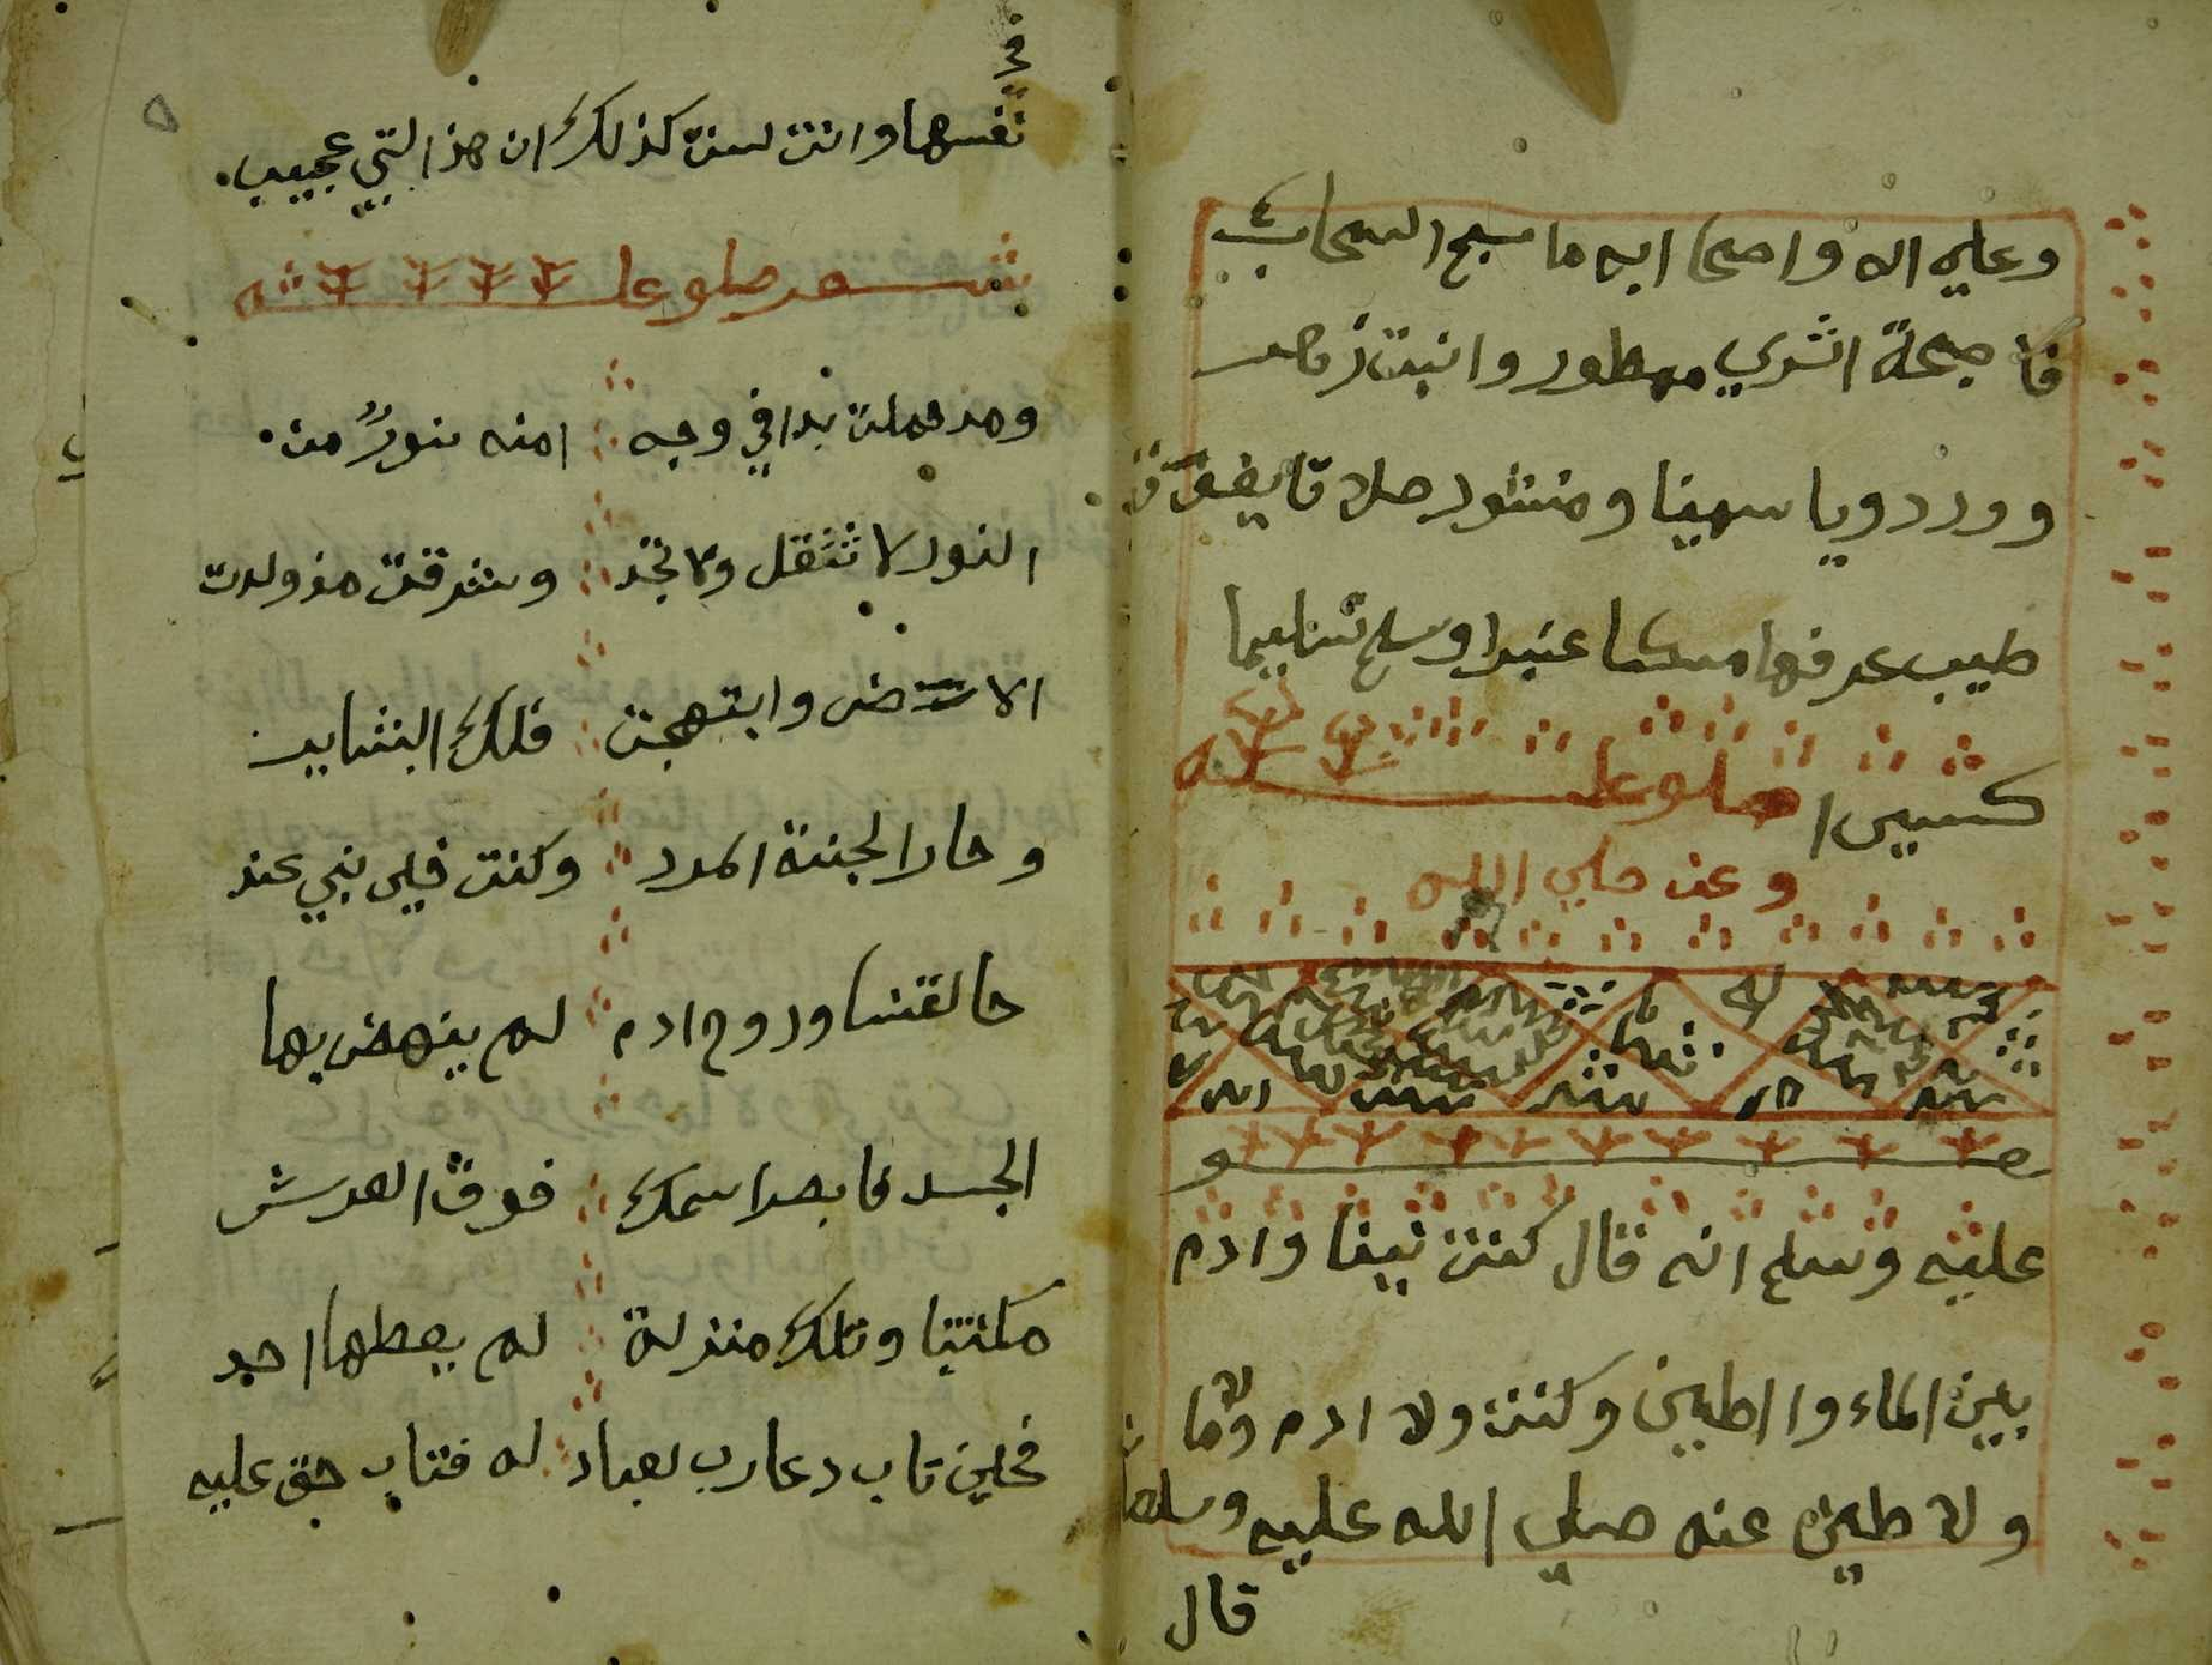 وعلي اله واصحا ابه ما سبح السحاب
فا صبحة الثري ممطور وانبت زهر
وورد ويا سمينا ومنثور صلاة تا يفوق
طيب عرفها مسكا عنبرا وسلم تسليما
كثيرا صلو عليه
وعن صلي الله
عليه وسلم انه قال كنت نبينا وادم
بين الماء واالطين وكنت ولا ادم ولا ما
ولا طين عنه صلي الله عليه وسلم
قال
في
نفسها وانت لست كذلك ان هذا لشي عجيب
شعر صلو عليه
ومد حملت بدا في وجه امنه نور من
النور لا تثقل ولا تخد وشرقت مذ ولدت
الارض وابتهجت فلك البشاير
وحار الجنة المدد وكنت فيي نبي عند
خالقنا وروح ادم لم ينهض بها
الجسد فا بصر اسمك فوق العرش
مكتتبا وتلك منزلة لم يعطها احد
فحين تاب دعا رب العباد له فتاب حق عليه